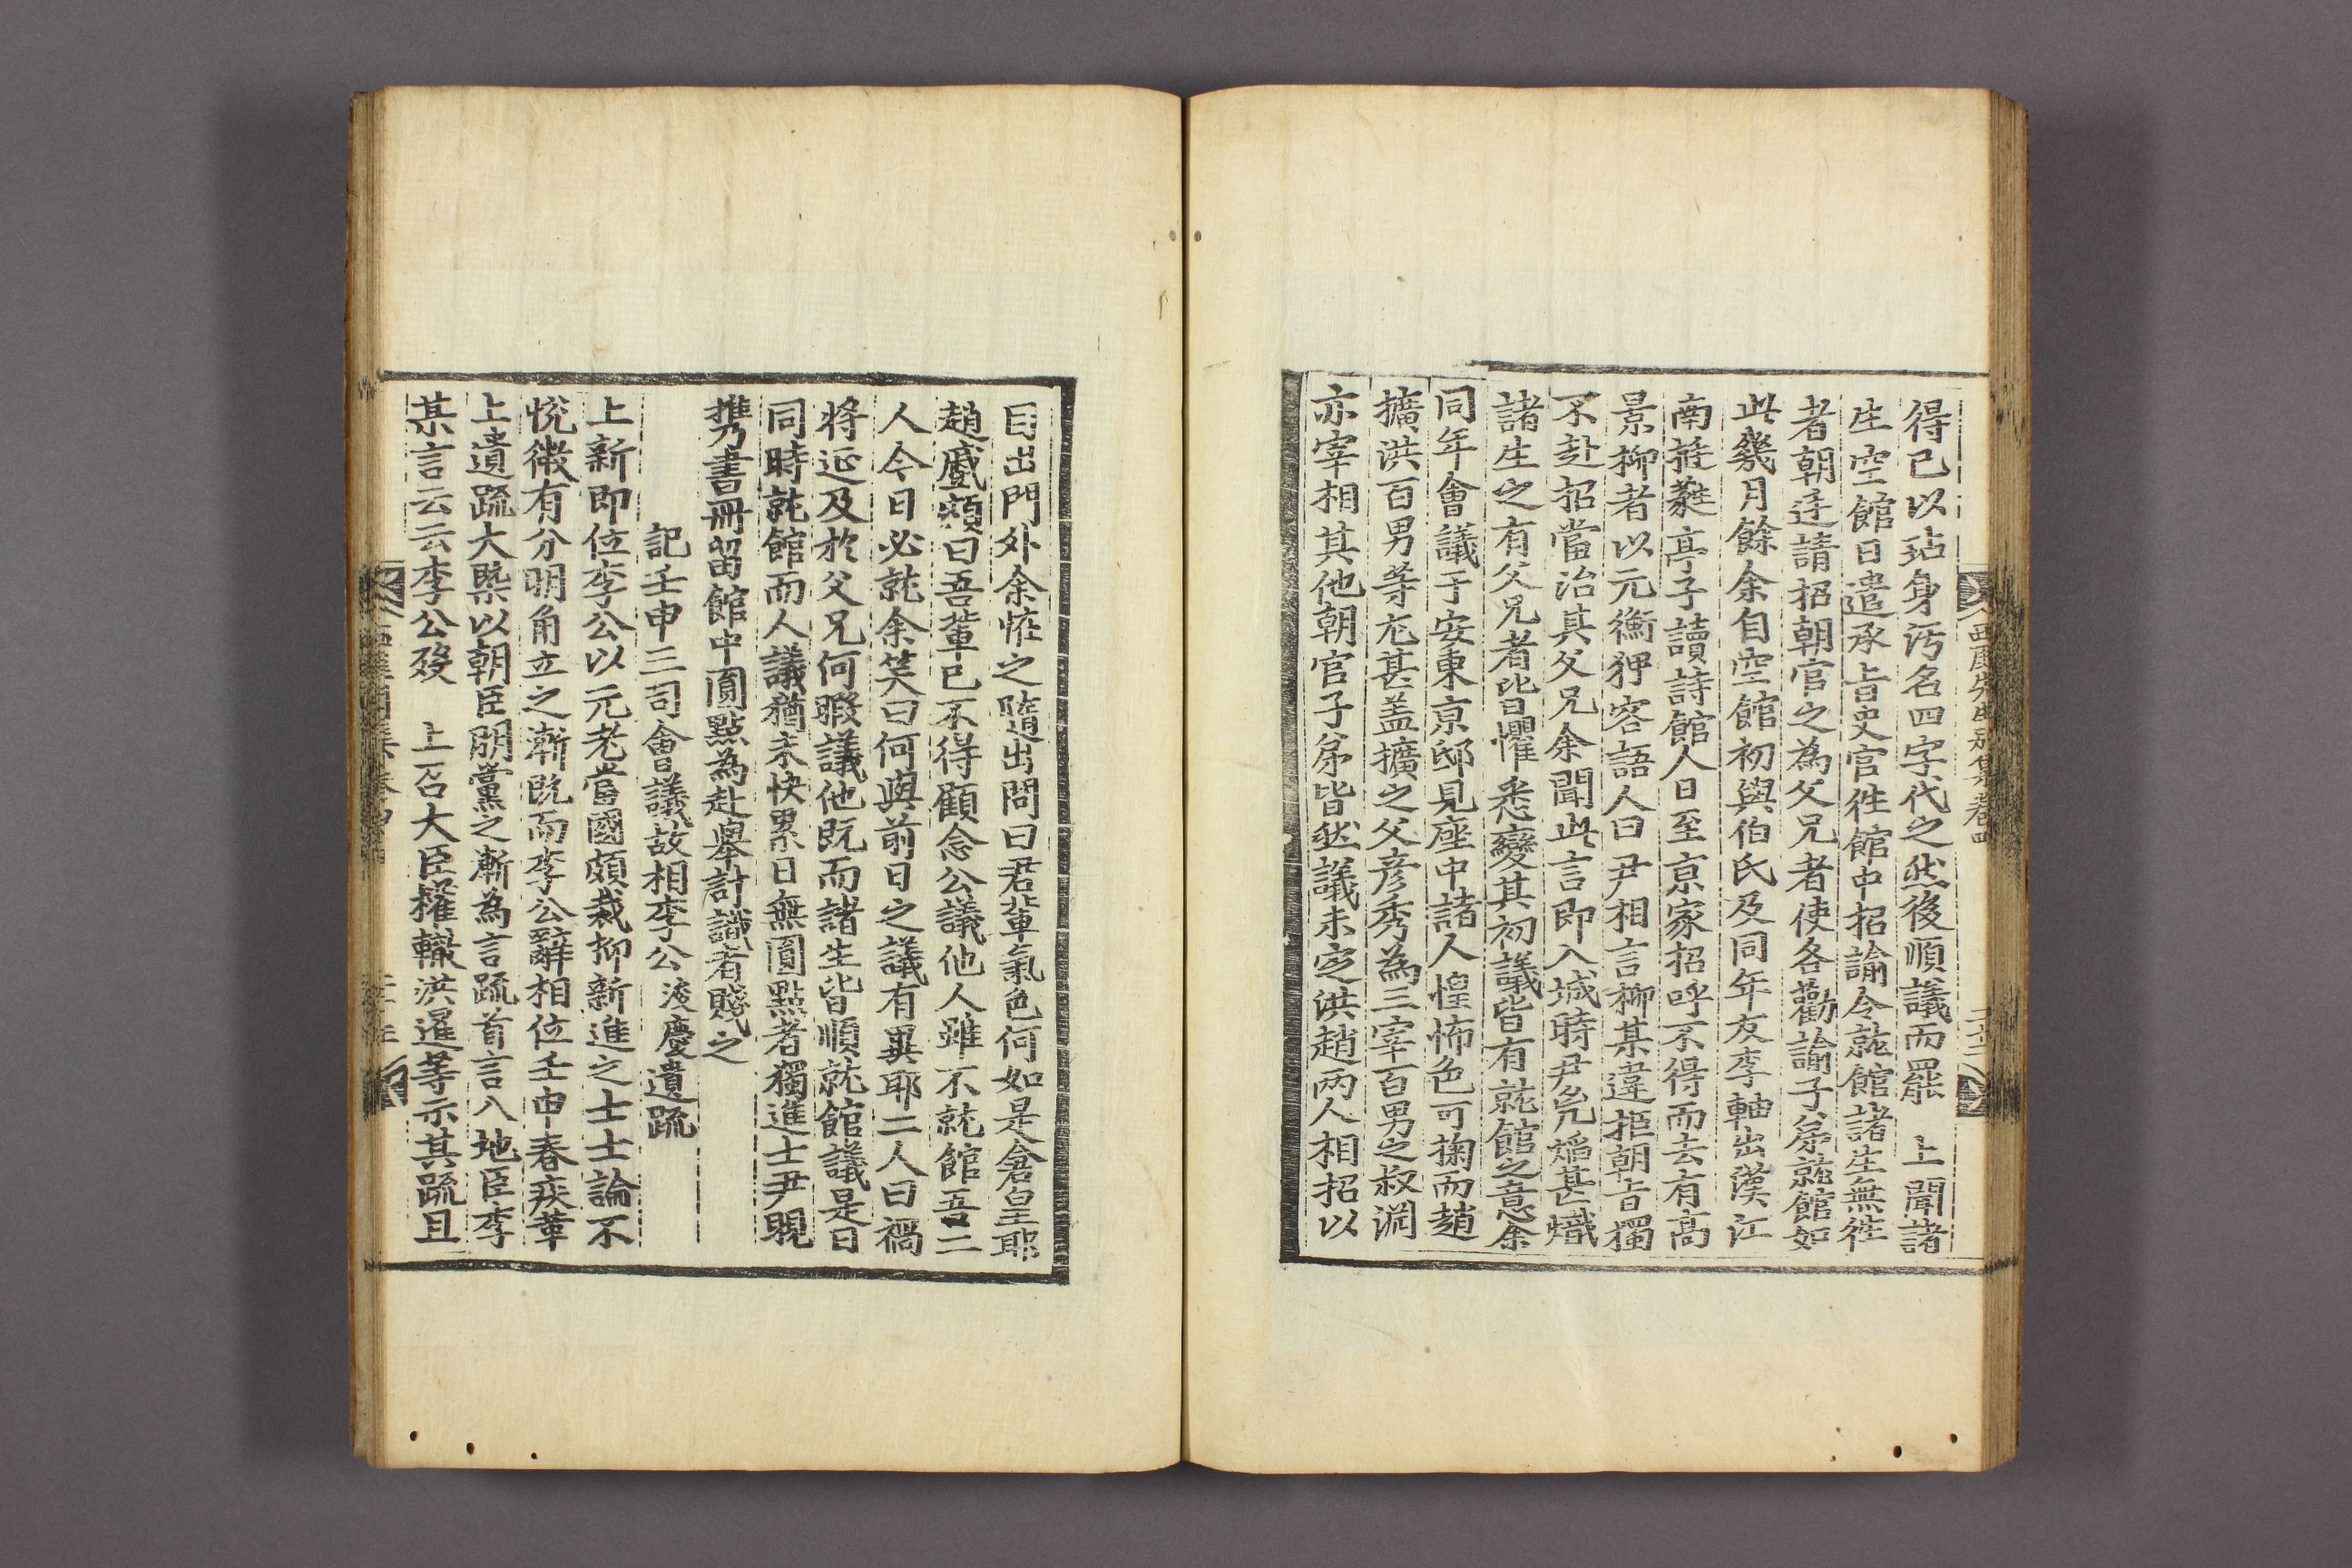 得已以玷身汚名四字代之然後順議而罷 上聞諸
生空館日遣承旨史官徃館中招諭令就館諸生無徃
者朝廷請招朝官之為父兄者使各勸諭子弟就館如
此幾月餘余自空館初與伯氏及同年友李軸出漢江
南蕤亭子讀詩館人日至京家招呼不得而去有高
景柳者以元衡狎客語人曰尹相言柳某違拒朝旨獨
不赴招當治其父兄余聞此言即入城時尹兇焰甚熾
諸生之有父兄者皆懼悉變其初議皆有就館之意余
同年會議于安東京邸見座中諸人惶怖色可掬而趙
擴洪百男等尤甚盖擴之父彦秀為三宰百男之叔淵
亦宰相其他朝官子弟皆然議未定洪趙兩人相招以
目出門外余恠之隨出問曰君輩氣色何如是倉皇耶
趙蹙頞曰吾輩已不得顧念公議他人雖不就館吾二
人今日必就余笑曰何與前日之議有異耶二人曰禍
將延及於父兄何暇議他既而諸生皆順就館議是日
同時就館而人議猶未快累日無圓點者獨進士尹晛
携書冊留館中圓點為赴擧計識者賤之
記壬申三司會議故相李公浚慶遺疏
上新即位李公以元老當國頗裁抑新進之士士論不
悅微有分明角立之漸既而李公辭相位壬申春疾革
上遺疏大槩以朝臣朋黨之漸為言疏首言入地臣李
某言云云李公發 上召大臣權轍洪暹等示其疏且
西厓先生別集卷四